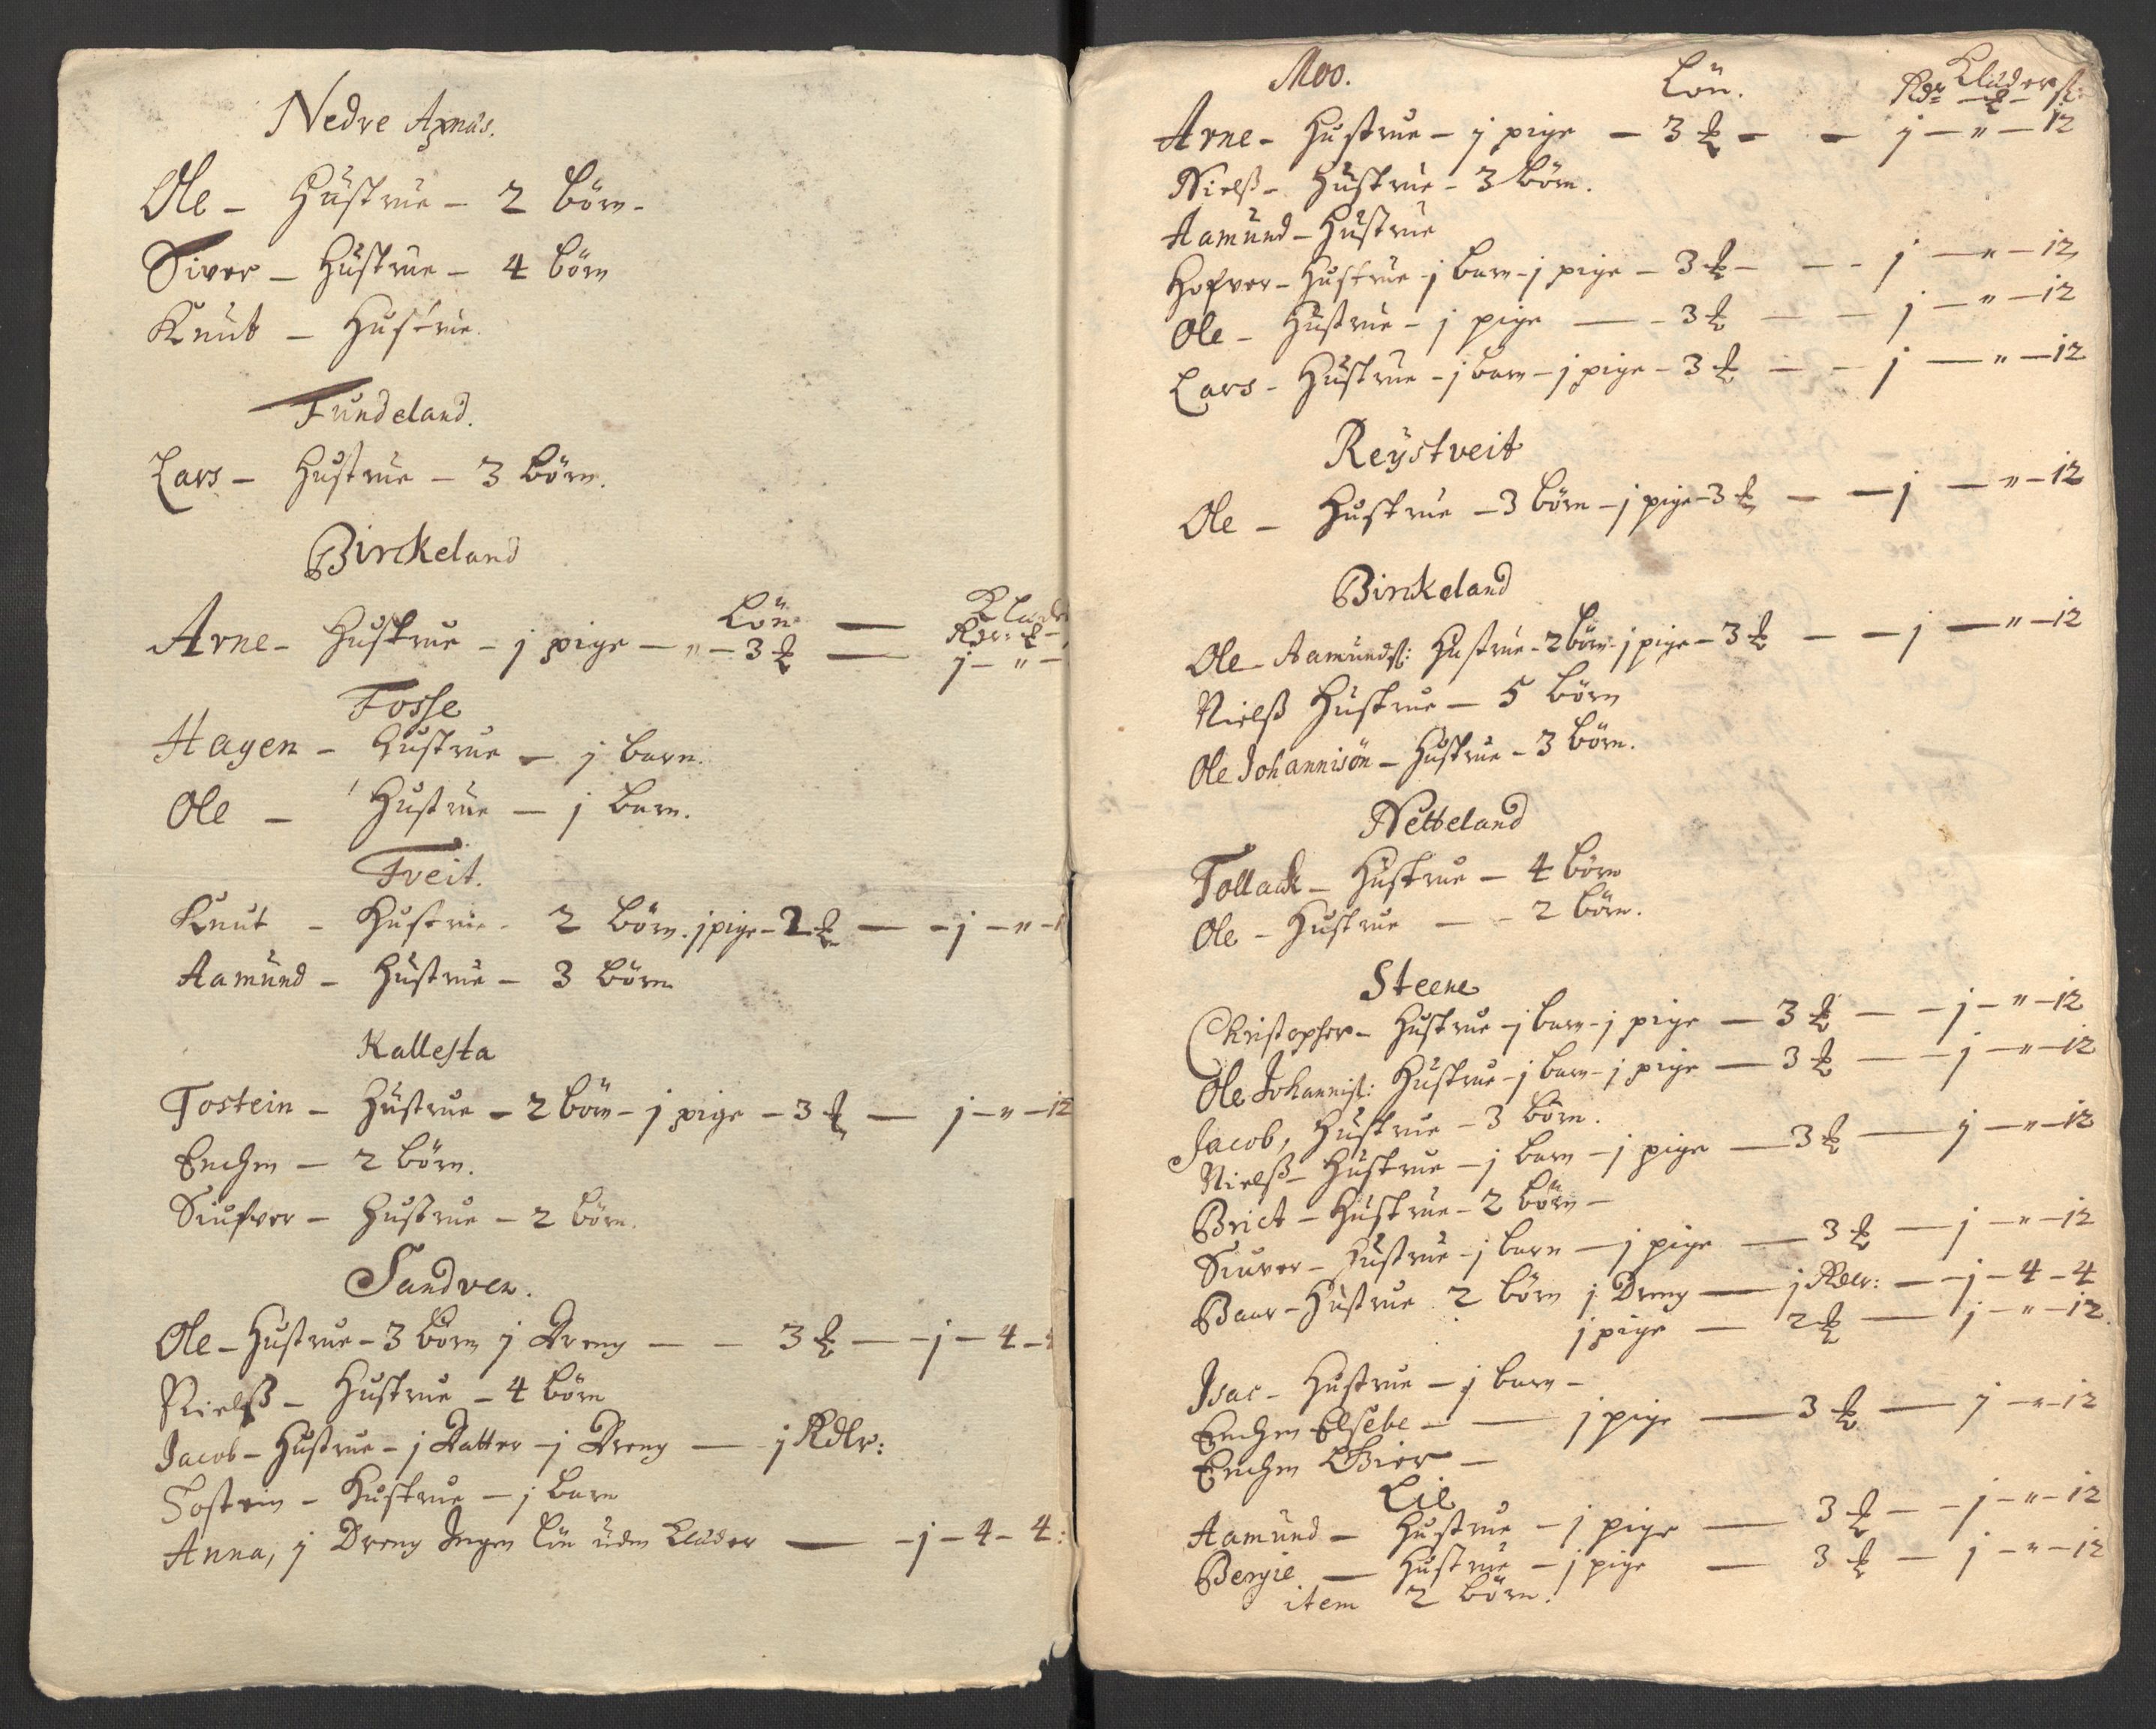 Nedre Axnäs.
Ole – Hustrue – 2 börn –
Siver – Hustrue – 4 börn
Knut – Hustrue.
Tundeland.
Lars – Hustrue – 3 börn.
Birckeland
Lön — Klæde
Rdr: ₰ –
Arne – Hustrue – j pige – " – 3 ₰ — j – " –
Fosse
Hagen – Hustrue – j barn.
Ole – Hustrue – j barn.
Tveit.
Knut – Hustrue – 2 börn. j pige – 2 ₰ — – j – " – 1
Aamund – Hustrue – 3 börn
Kallesta
Tostein – Hustrue – 2 börn – j pige – 3 ₰ — j – " – 12
Enchen – 2 börn.
Siufver – Hustrue – 2 börn.
Sandven.
Ole – Hustrue – 3 börn j Dreng — – 3 ₰ — – j – 4 – 4
Nielß – Hustrue – 4 börn
Jacob – Hustrue – j Datter – j Dreng — j Rdlr:
Tostein – Hustrue – j barn
Anna, j Dreng Ingen lön uden klæder — – j – 4 – 4:
Moo. Lön. Klæder
Rdr – ₰ – ß:
Arne – Hustrue – j pige – 3 ₰ – – j – " – 12
Nielß – Hustrue – 3 börn.
Aamund – Hustrue
Hofver – Hustrue – j barn – j pige – 3 ₰ – – – j – " – 12
Ole – Hustrue – j pige — – 3 ₰ — – j – " – 12
Lars – Hustrue – j barn – j pige – 3 ₰ – – j — " – 12
Reystveit
Ole – Hustrue – 3 börn – j pige – 3 ₰ – – j — " – 12
Birckeland
Ole Aamundß: Hustrue – 2 börn – j pige – 3 ₰ – – j — " – 12
Nielß Hustrue – 5 börn
Ole Johannisön – Hustrue – 3 börn.
Netteland
Tollack – Hustrue – 4 börn
Ole – Hustrue — – 2 börn.
Steene
Christopher – Hustrue – j barn – j pige – 3 ₰ — – j – " – 12
Ole Johannisß: Hustrue – j barn – j pige – 3 ₰ — – j – " – 12
Jacob, Hustrue – 3 börn.
Nielß – Hustrue – j barn – j pige — 3 ₰ — j – " – 12
Brict – Hustrue – 2 börn –
Siuver – Hustrue – j barn – j pige — 3 ₰ – j – " – 12
Baar – Hustrue 2 börn j Dreng — j Rdlr: – – j – 4 – 4
j pige – 2 ₰ — j – " – 12.
Isac – Hustrue – j barn –
Enchen Elsebe – — j pige — 3 ₰ — j – " – 12
Enchen –
Lie
Aamund – Hustrue – j pige — 3 ₰ – – j – " – 12
Bergie — Hustrue – j pige — 3 ₰ – j – " – 12
item 2 börn.